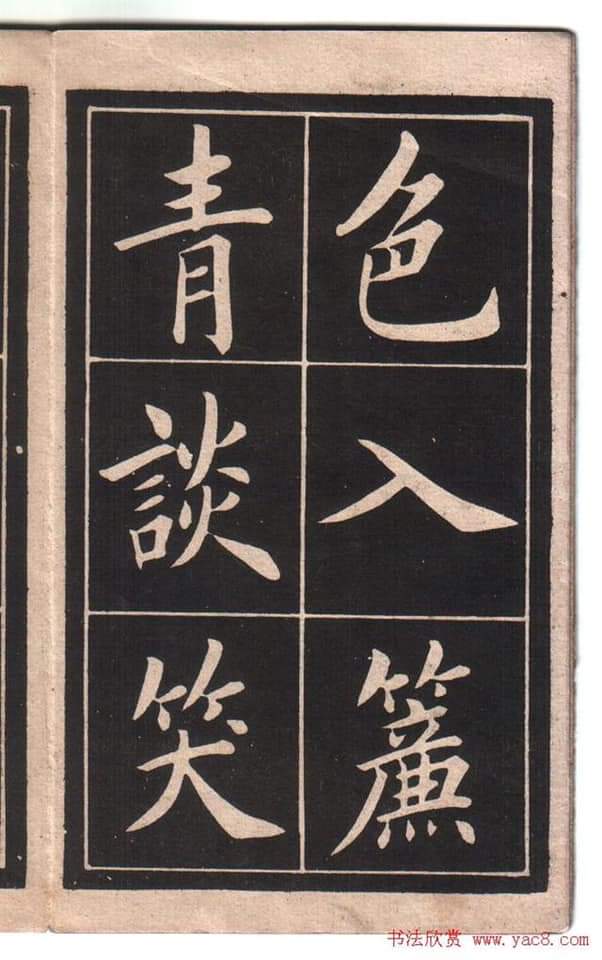 色入簾
青談笑
书法欣赏 www.yac8.com